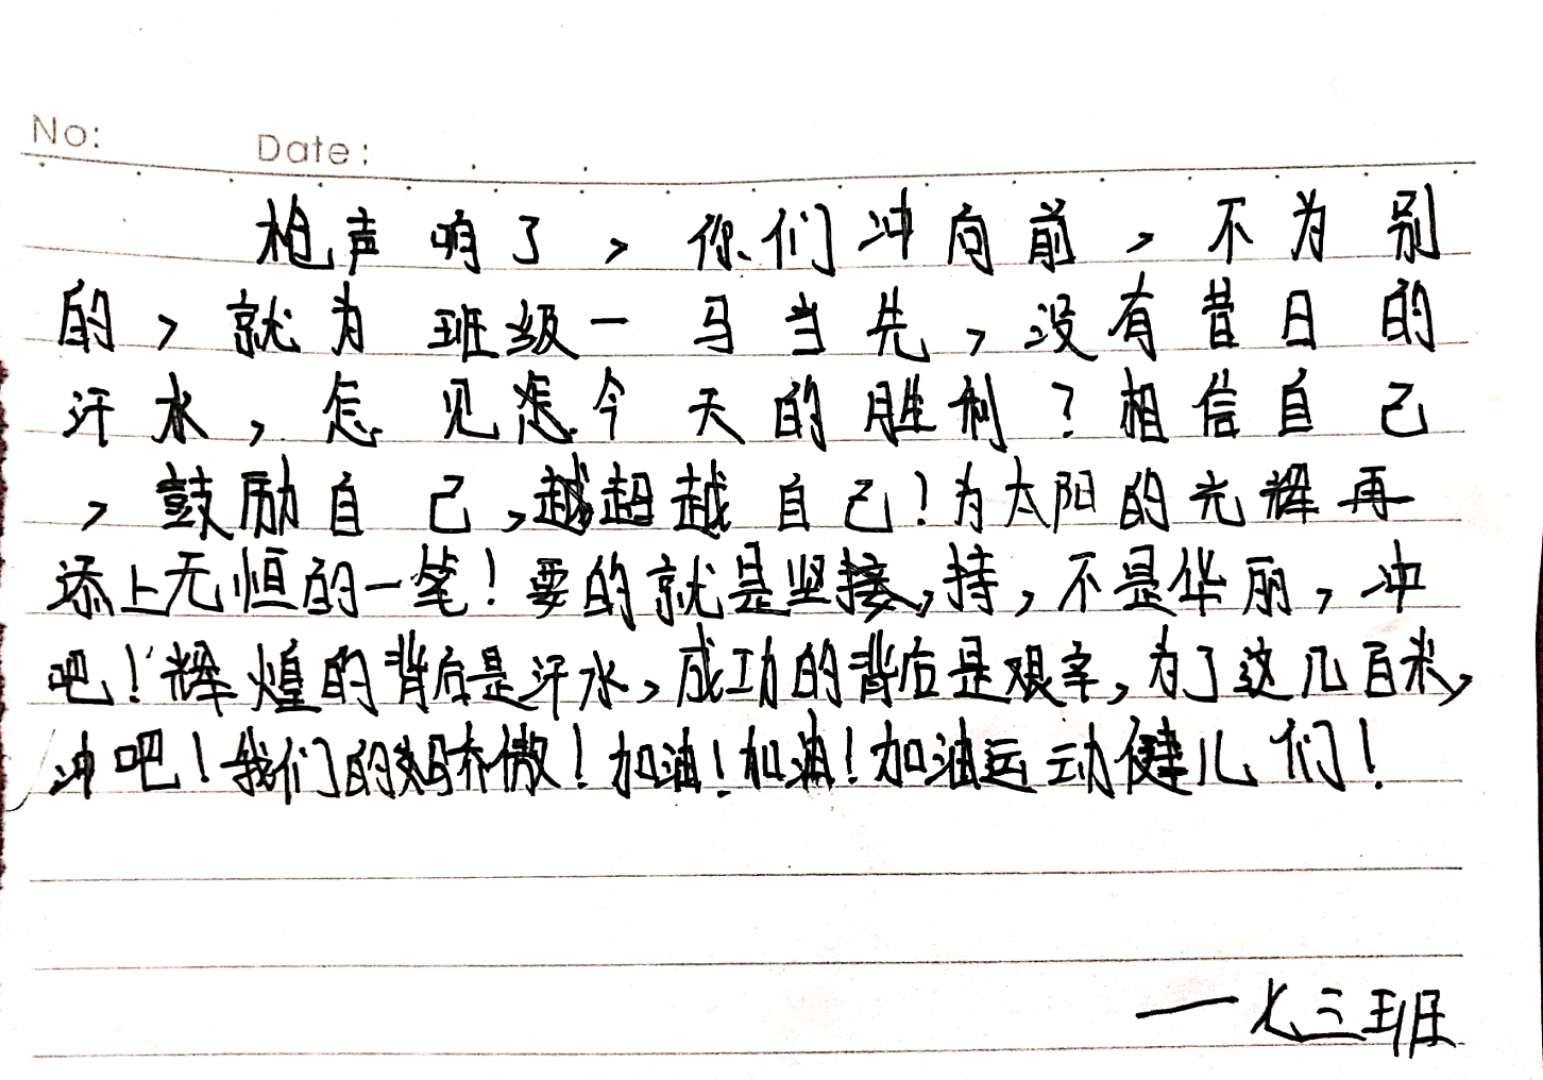 No: Date:
枪声响了，你们冲向前，不为别
的，就为班级一马当先，没有昔日的
汗水，怎见怎今天的胜利？相信自己
，鼓励自己，超越自己！为太阳的光辉再
添上无恒的一笔！要的就是坚持，不是华丽，冲
吧！辉煌的背后是汗水，成功的背后是艰辛，为了这几百米，
冲吧！我们的骄傲！加油！加油！加油运动健儿们！
一七三班